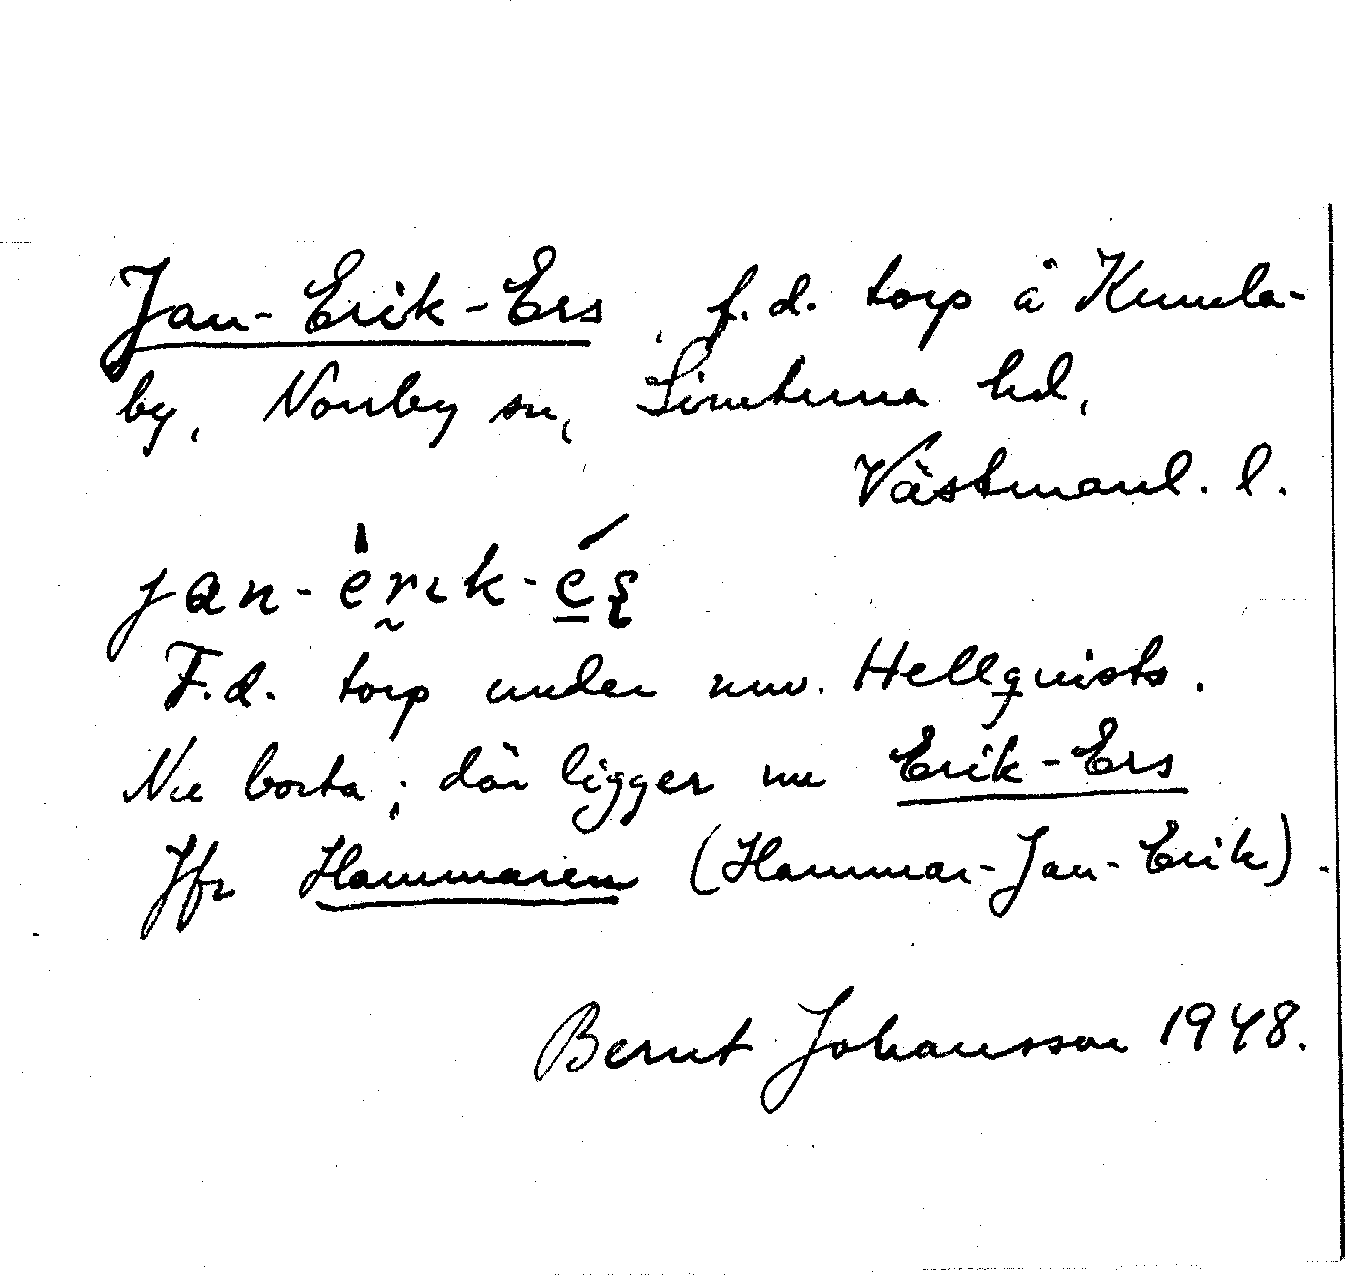 Jan-Erik-Ers, f.d. torp å Kumla-
by, Norrby sn, Simtuna hd,
Västmanl. l.
jan-èrık-és
F.d. torp under nuv. Hellquists.
Nu borta; där ligger nu Erik-Ers
Jfr Hammaren (Hammar-Jan-Erik).
Bernt Johansson 1948.